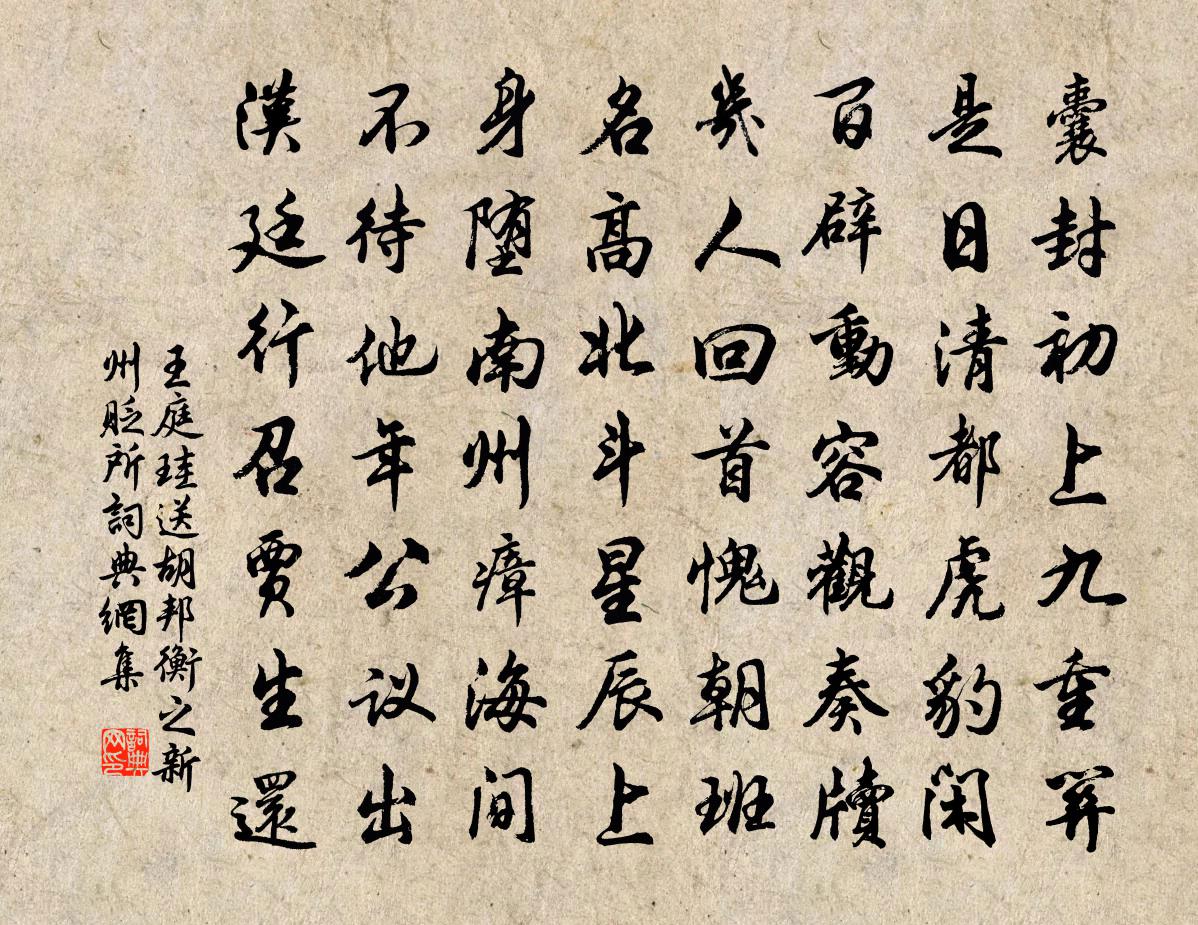 囊封初上九重関
是日清都虎豹闲
百辟動容觀奏牘
幾人回首愧朝班
名高北斗星辰上
身墮南州瘴海间
不待他年公议出
漢廷行召賈生還
王庭珪送胡邦衡之新
州貶所詞典網集
詞典
网印